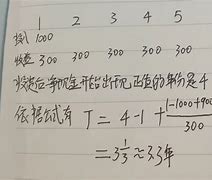 1 2 3 4 5
投入 1000
收益 300 300 300 300 300
收益后净现金开始出现正值的年份是4
依据公式有 T = 4-1 + |-1000+900 / 300
= 3 1/3 ≈ 3.3年